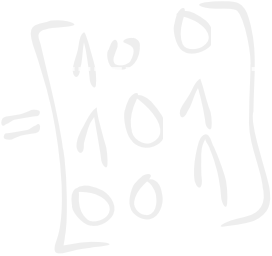 = [1 0 0
1 0 1
0 0 1]